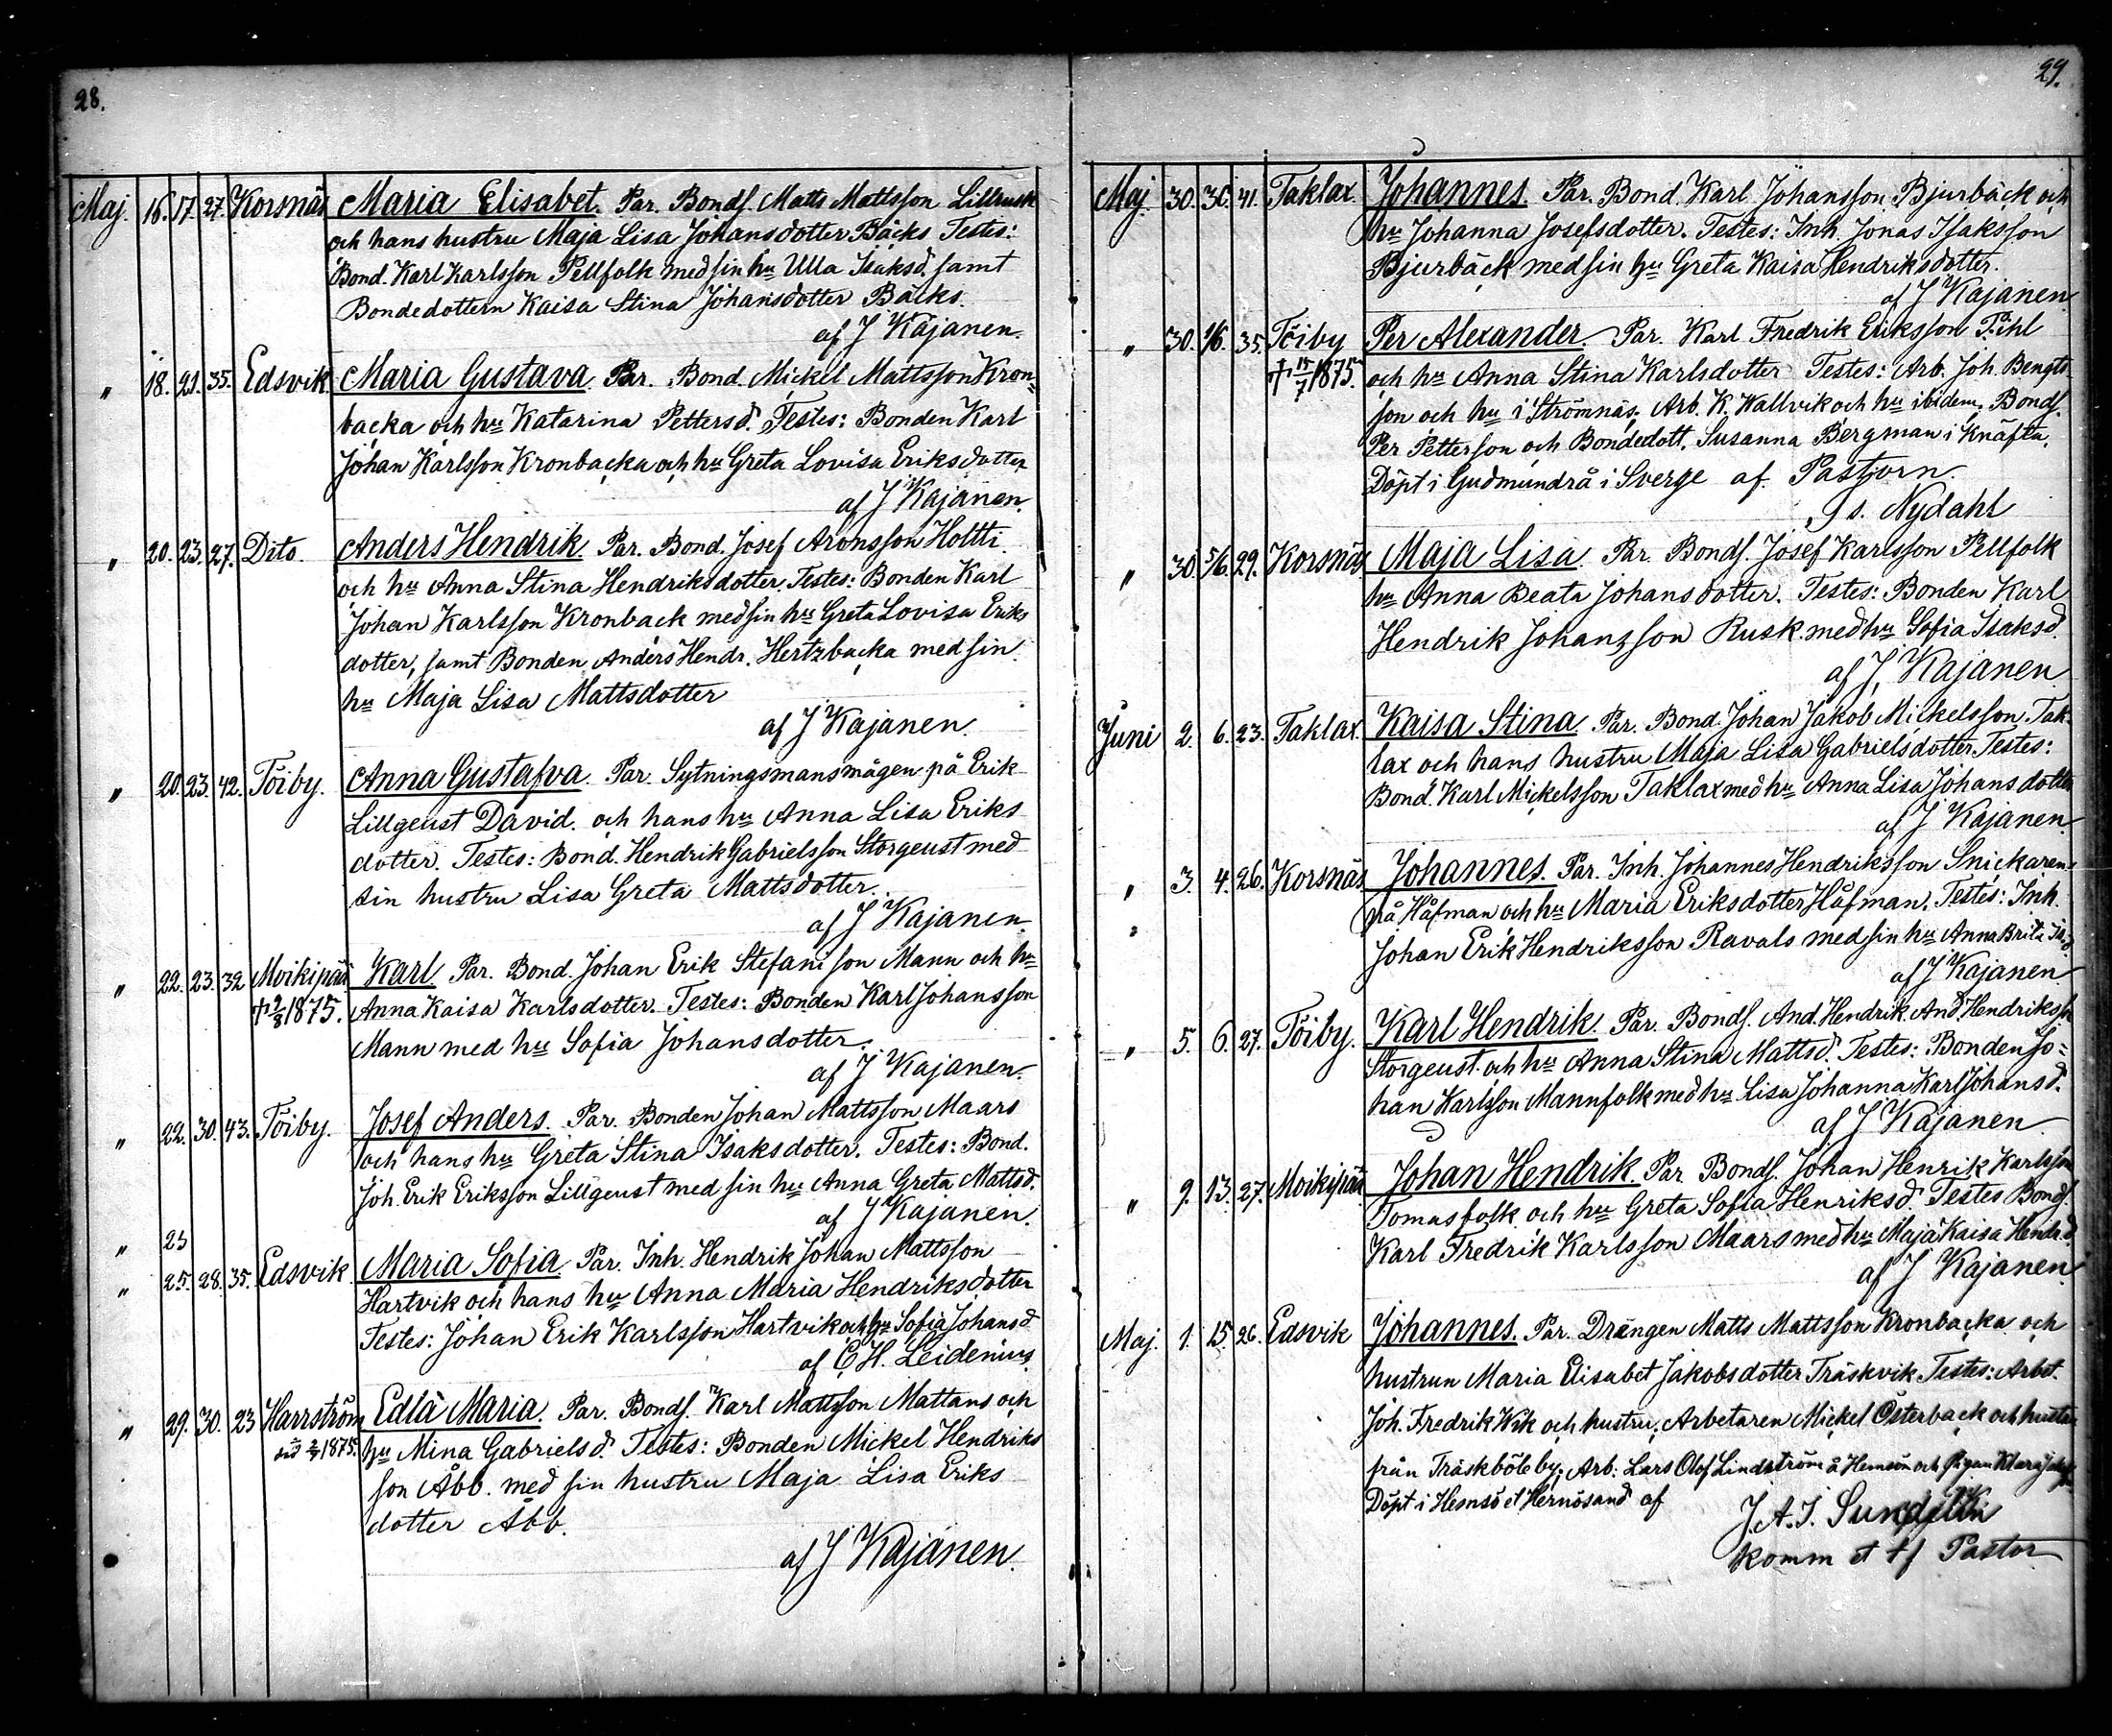 28.
Maj. 16. 17. 27. Korsnäs Maria Elisabet. Par. Bonds. Matts Mattsson Lillrusk
och hans hustru Maja Lisa Johansdotter Bäcks Testes:
Bond. Karl Karlsson Pellfolk med sin hu Ulla Isaksd. samt
Bondedottern Kaisa Stina Johansdotter Bäcks.
af J Kajanen.
" 18. 21. 35. Edsvik. Maria Gustava. Par. Bond. Mickel Mattsson Kron=
backa och hu Katarina Pettersd. Testes: Bonden Karl
Johan Karlsson Kronbacka och hu Greta Lovisa Eriksdotter
af J Kajanen.
" 20. 23. 27. Dito. Anders Hendrik. Par. Bond. Josef Aronsson Holtti
och hu Anna Stina Hendriksdotter. Testes: Bonden Karl
Johan Karlsson Kronback med sin hu Greta Lovisa Eriks
dotter, samt Bonden Anders Hendr. Hertzbacka med sin
hu Maja Lisa Mattsdotter
af J Kajanen.
" 20. 23. 42. Töiby. Anna Gustafva. Par. Sytningsmansmågen på Erik
Lillgeust David. och hans hu Anna Lisa Eriks
dotter. Testes: Bond. Hendrik Gabrielsson Storgeust med
sin hustru Lisa Greta Mattsdotter.
af J Kajanen.
" 22. 23. 32 Moikipää Karl. Par. Bond. Johan Erik Stefansson Mann och hu
† 9/8 1875. Anna Kaisa Karlsdotter. Testes: Bonden Karl Johansson
Mann med hu Sofia Johansdotter.
af J Kajanen.
" 22. 30. 43. Töiby. Josef Anders. Par. Bonden Johan Mattsson Maars
och hans hu Greta Stina Isaksdotter. Testes: Bond.
Joh. Erik Eriksson Lillgeust med sin hu Anna Greta Mattsd.
af J Kajanen.
" 23
" 25. 28. 35. Edsvik Maria Sofia. Par. Inh. Hendrik Johan Mattsson
Hartvik och hans hu Anna Maria Hendriksdotter
Testes: Johan Erik Karlsson Hartvik och hu Sofia Johansd
af C H. Leidenius.
" 29. 30. 23 Harrström Edla Maria. Par. Bonds. Karl Mattsson Mattans och
1875. hu Mina Gabrielsd. Testes: Bonden Mickel Hendriks
son Åbb. med sin hustru Maja Lisa Eriks
dotter Åbb.
af J Kajanen.
29.
Maj. 30. 30. 41. Taklax. Johannes. Par. Bond. Karl Johansson Bjurbäck och
hu Johanna Josefsdotter. Testes: Inh. Jonas Isaksson
Bjurbäck med sin hu Greta Kaisa Hendriksdotter.
af J Kajanen
" 30. 1/6. 35. Töiby Per Alexander. Par. Karl Fredrik Eriksson Pihl
† 15/7 1875. och hu Anna Stina Karlsdotter Testes: Arb. Joh. Bengts
son och hu i Strömnäs, Arb. K. Wallvik och hu ibidem, Bonds.
Per Petterson och Bondedott. Susanna Bergman i Knäfta.
Döpt i Gudmundrå i Sverge af Pastorn
s. Nydahl
" 30. 5/6. 29. Korsnäs Maja Lisa. Par. Bonds. Josef Karlsson Pellfolk
hu Anna Beata Johansdotter. Testes: Bonden Karl
Hendrik Johansson Rusk. med hu Sofia Isaksd.
af J Kajanen
Juni 2. 6. 23. Taklax. Kaisa Stina. Par. Bond. Johan Jakob Mickelsson Tak-
lax och hans hustru Maja Lisa Gabrielsdotter. Testes:
Bond. Karl Mickelsson Taklax med hu Anna Lisa Johansdotter
af J Kajanen.
" 3. 4. 26. Korsnäs Johannes. Par. Inh. Johannes Hendriksson Snickarens
på Håfman och hu Maria Eriksdotter Håfman. Testes: Inh.
Johan Erik Hendriksson Ravals med sin hu Anna Brita
af J Kajanen
" 5. 6. 27. Töiby. Karl Hendrik. Par. Bonds. And. Hendrik And. Hendriksson
Storgeust och hu Anna Stina Mattsd. Testes: Bonden Jo=
han Karlsson Mannfolk med hu Lisa Johanna Karl Johansd.
af J Kajanen
" 9. 13. 27. Moikipää Johan Hendrik. Par. Bonds. Johan Henrik Karlsson
Tomasfolk och hu Greta Sofia Henriksd. Testes Bonds.
Karl Fredrik Karlsson Maars med hu Maja Kaisa Hendr.d.
af J Kajanen.
Maj. 1. 15. 26. Edsvik Johannes. Par. Drängen Matts Mattsson Kronbacka och
hustrun Maria Elisabet Jakobsdotter Träskvik. Testes: Arbet.
Joh. Fredrik Wik och hustru, Arbetaren Mickel Österback och hustru
från Träskböle by, Arb: Lars Olof Lindström å Hemsön och Pigan Klara
Döpt i Hemsö et Hernösand af
J. A. I.
Komm et tf Pastor